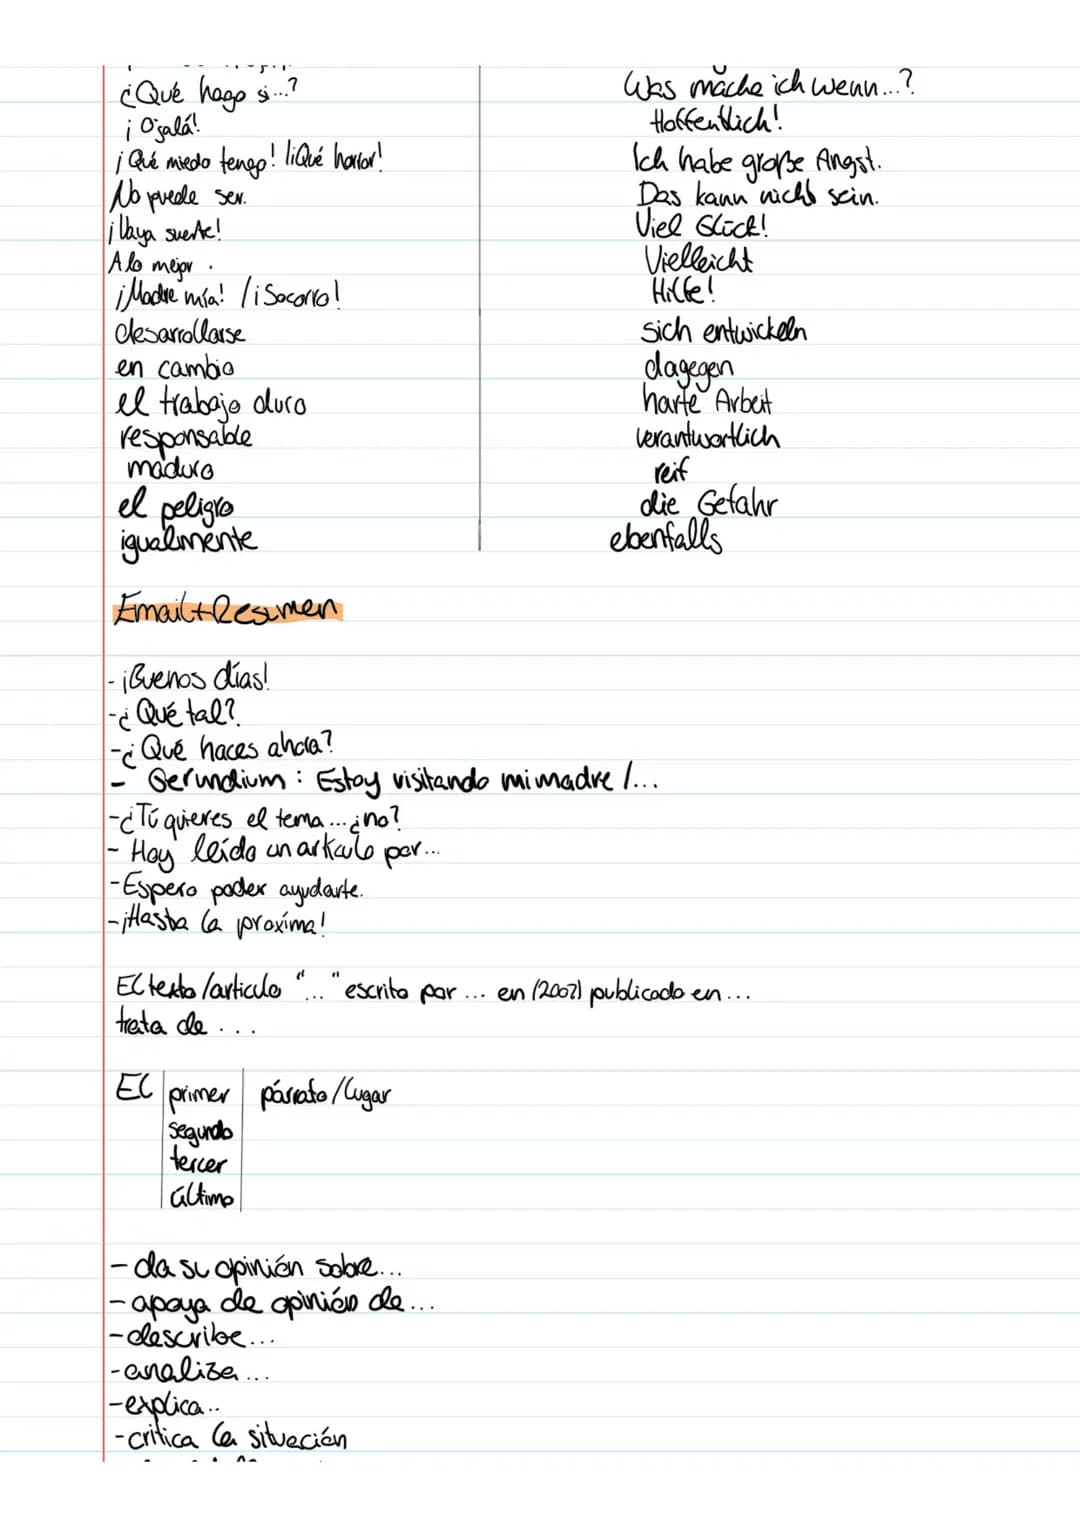 ¿Qué hago si...? Was mache ich wenn...?
¡Ojalá! Hoffentlich!
¡Qué miedo tengo! / ¡Qué horror! Ich habe große Angst.
No puede ser. Das kann nicht sein.
¡Vaya suerte! Viel Glück!
A lo mejor. Vielleicht
¡Madre mía! / ¡Socorro! Hilfe!
desarrollarse sich entwickeln
en cambio dagegen
el trabajo duro harte Arbeit
responsable verantwortlich
maduro reif
el peligro die Gefahr
igualmente ebenfalls
Email+Resumen
- ¡Buenos días!
- ¿Qué tal?
- ¿Qué haces ahora?
- Gerundium: Estoy visitando mi madre /...
- ¿Tú quieres el tema... ¿no?
- Hoy leído un artículo por...
- Espero poder ayudarte.
- ¡Hasta la proxíma!
El texto/articulo "..." escrito por ... en (2007) publicado en ...
trata de ...
El primer párrafo/lugar
segundo
tercer
último
- da su opinión sobre...
- apoya de opinión de ...
- describe...
- analiza...
- explica..
- critica la situación